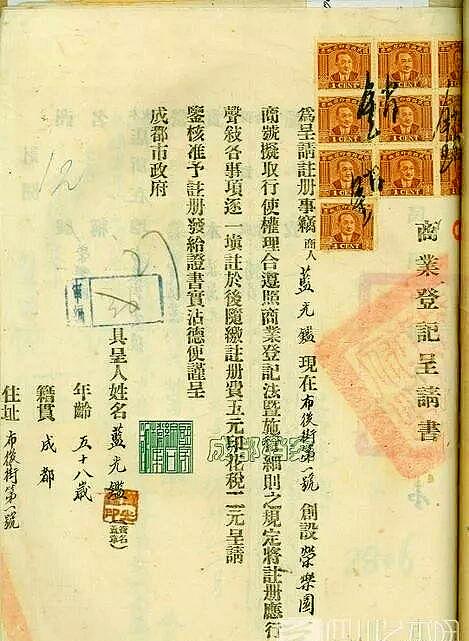 商業登記呈請書
為呈請註册事竊商人藍光鑑現在布後街第一號創設榮樂園
商號擬取行使權理合遵照商業登記法暨施行細則之規定將註册應行
聲敍各事項逐一填註於後隨繳註册費五元印花稅二元呈請
鑒核准予註册發給證書實沾德便謹呈
成都市政府
具呈人姓名藍光鑑(簽名蓋章)
年齡五十八歲
籍貫成都
住址布後街第一號
1 CENT
1 CENT
1 CENT
1 CENT
1 CENT
1 CENT
1 CENT
12